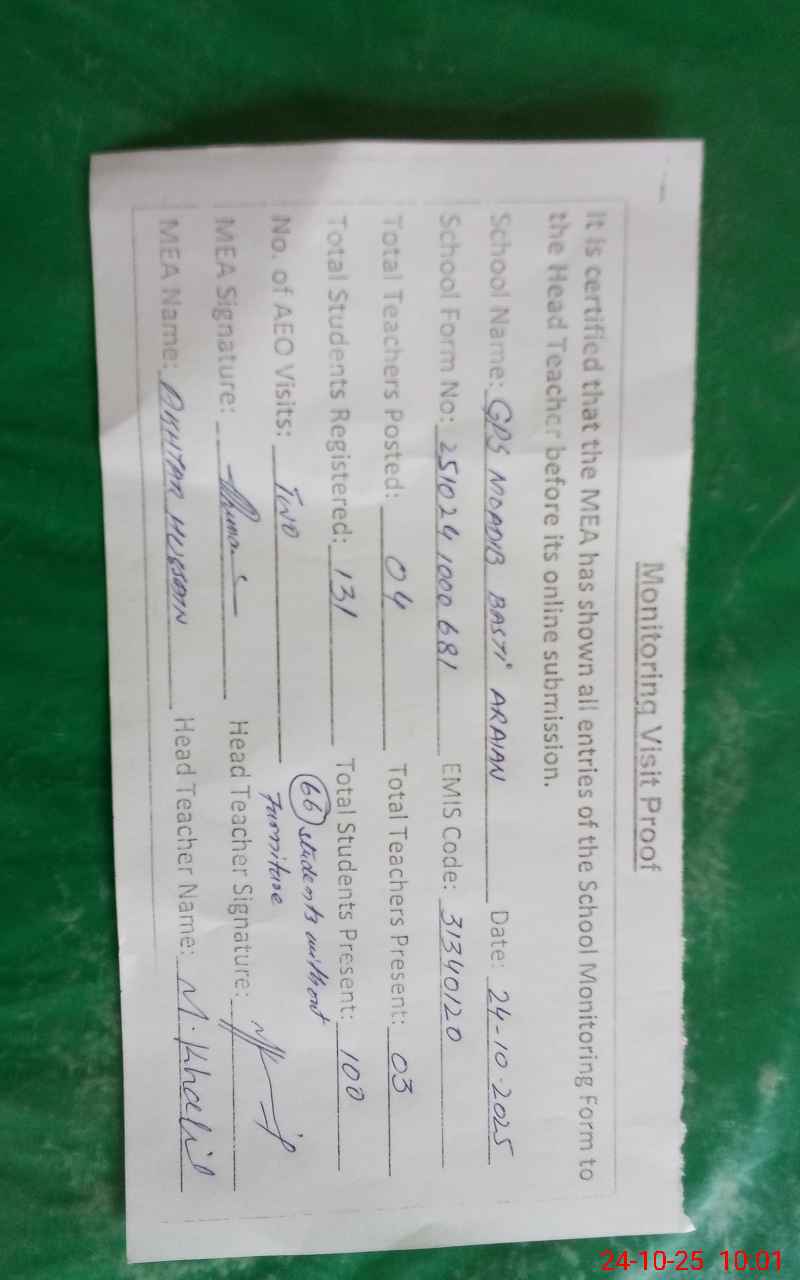 Monitoring Visit Proof
It is certified that the MEA has shown all entries of the School Monitoring Form to
the Head Teacher before its online submission.
School Name: GPS MOADIB BASTI ARAIAN Date: 24-10-2025
School Form No: 251024 1000681 EMIS Code: 31340120
Total Teachers Posted: 04 Total Teachers Present: 03
Total Students Registered: 131 Total Students Present: 100
66 students without
No. of AEO Visits: Two Furniture
MEA Signature: Head Teacher Signature:
MEA Name: AKHTAR HUSSAIN Head Teacher Name: M. Khalil
24-10-25 10:01